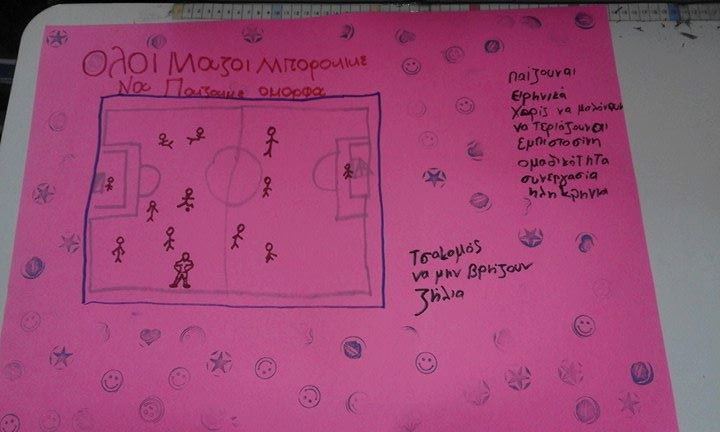 Ολοι Μαζοι Μπορουμε
Να Παιζουμε ομορφα
Παίζουναι
Ειρηνικά
Χωρίς να μαλώνουν
να Τεριάζουναι
Εμπιστοσίνη
ομαδικότητα
συνεργασία
ηλη κρήνια
Τσακομός
να μην βρήζουν
Ζήλια